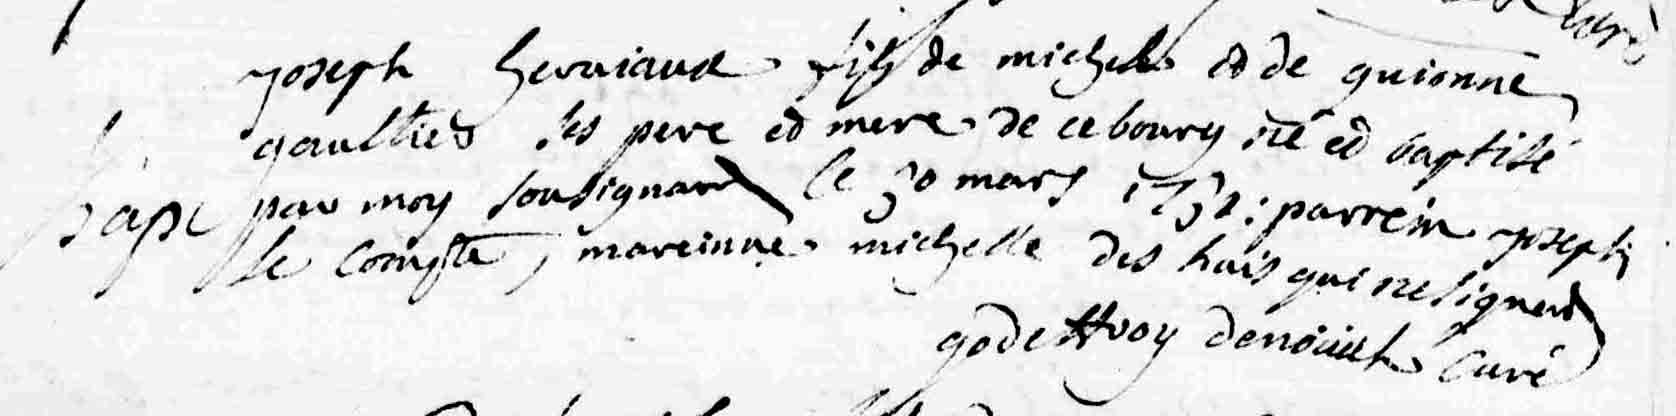 Joseph herviaux fils de michel et de guionne
gaultier ses pere et mere de ce bourg né et baptisé
Bap par moy sousignant le 30 mars 1731 : parrein joseph
le Compte, mareinne michelle des hais qui ne signent
godeffroy Curé